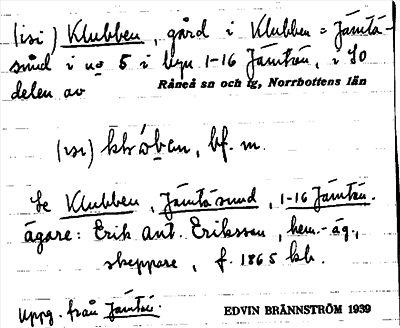 (isi) Klubben, gård i Klubben = Jämtö-
sund i no 5 i byn 1-16 Jämtön, i SO
delen av Råneå sn och tg, Norrbottens län
(isi) bf. m.
Se Klubben, Jämtösund, 1-16 Jämtön.
ägare: Erik Ant. Eriksson, hem.-äg.,
skeppare, f. 1865 kb.
Uppg. från Jämtö.
EDVIN BRÄNNSTRÖM 1939